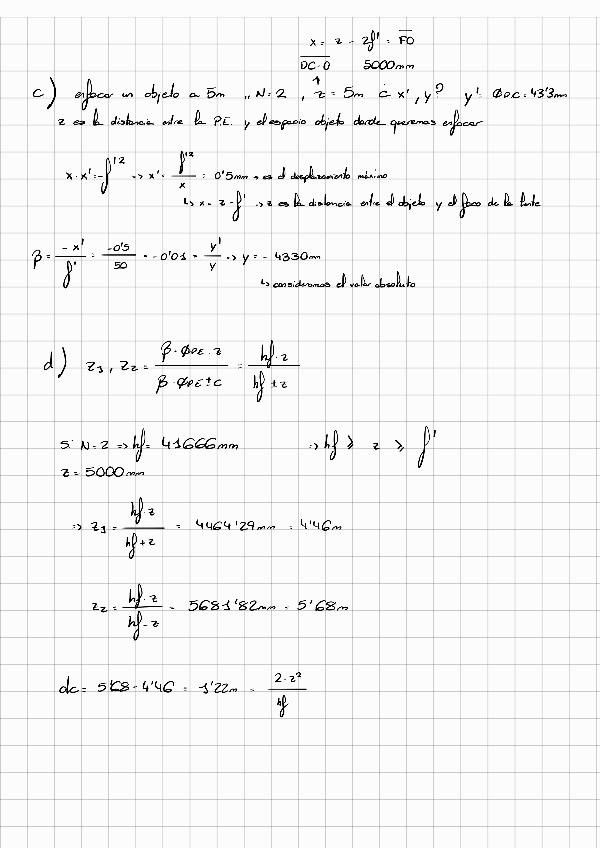 x = z - 2f' = FO
DC·O 5000mm
c) enfocar un objeto a 5m ,, N=2 , z = 5m ¿ x', y? y' = ΦDC = 43'3mm
z es la distancia entre la P.E. y el espacio objeto donde queremos enfocar
x·x' = -f'² => x' = f'²/x = 0'5mm → es el desplazamiento máximo
↳ x = z - f' -> z es la distancia entre el objeto y el foco de la lente
β = -x'/f' = -0'5/50 = -0'01 = y'/y -> y = - 4330mm
↳ consideramos el valor absoluto
d) z1, z2 = β·ΦPE·z / β·ΦPE±c = hf·z / hf±z
Si N=2 => hf = 41666mm => hf ≥ z ≥ f'
z = 5000mm
=> z1 = hf·z / hf+z = 4464'29mm = 4'46m
z2 = hf·z / hf-z = 5681'82mm = 5'68m
dc = 5'68 - 4'46 = 1'22m = 2·z² / hf